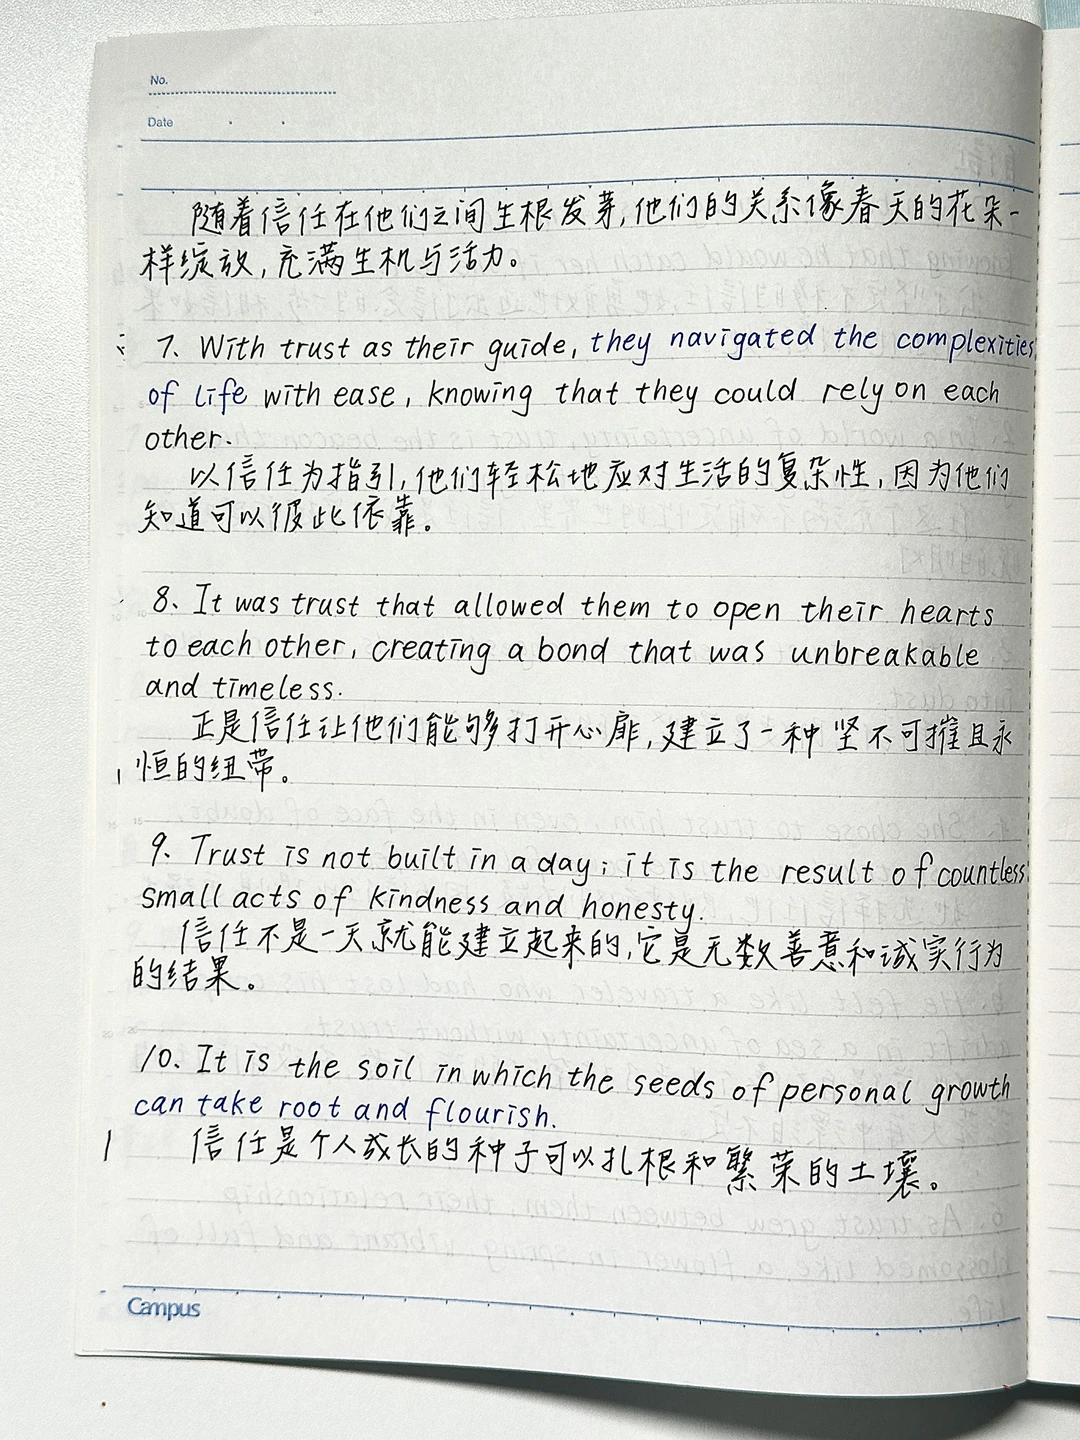 No.
Date
随着信任在他们之间生根发芽,他们的关系像春天的花朵一
样绽放,充满生机与活力。
7、With trust as their guide, they navigated the complexities
of life with ease, knowing that they could rely on each
other.
以信任为指引,他们轻松地应对生活的复杂性,因为他们
知道可以彼此依靠。
8、It was trust that allowed them to open their hearts
to each other, creating a bond that was unbreakable
and timeless.
正是信任让他们能够打开心扉,建立了一种坚不可摧且永
恒的纽带。
9、Trust is not built in a day; it is the result of countless
small acts of kindness and honesty.
信任不是一天就能建立起来的,它是无数善意和诚实行为
的结果。
10、It is the soil in which the seeds of personal growth
can take root and flourish.
信任是个人成长的种子可以扎根和繁荣的土壤。
Campus